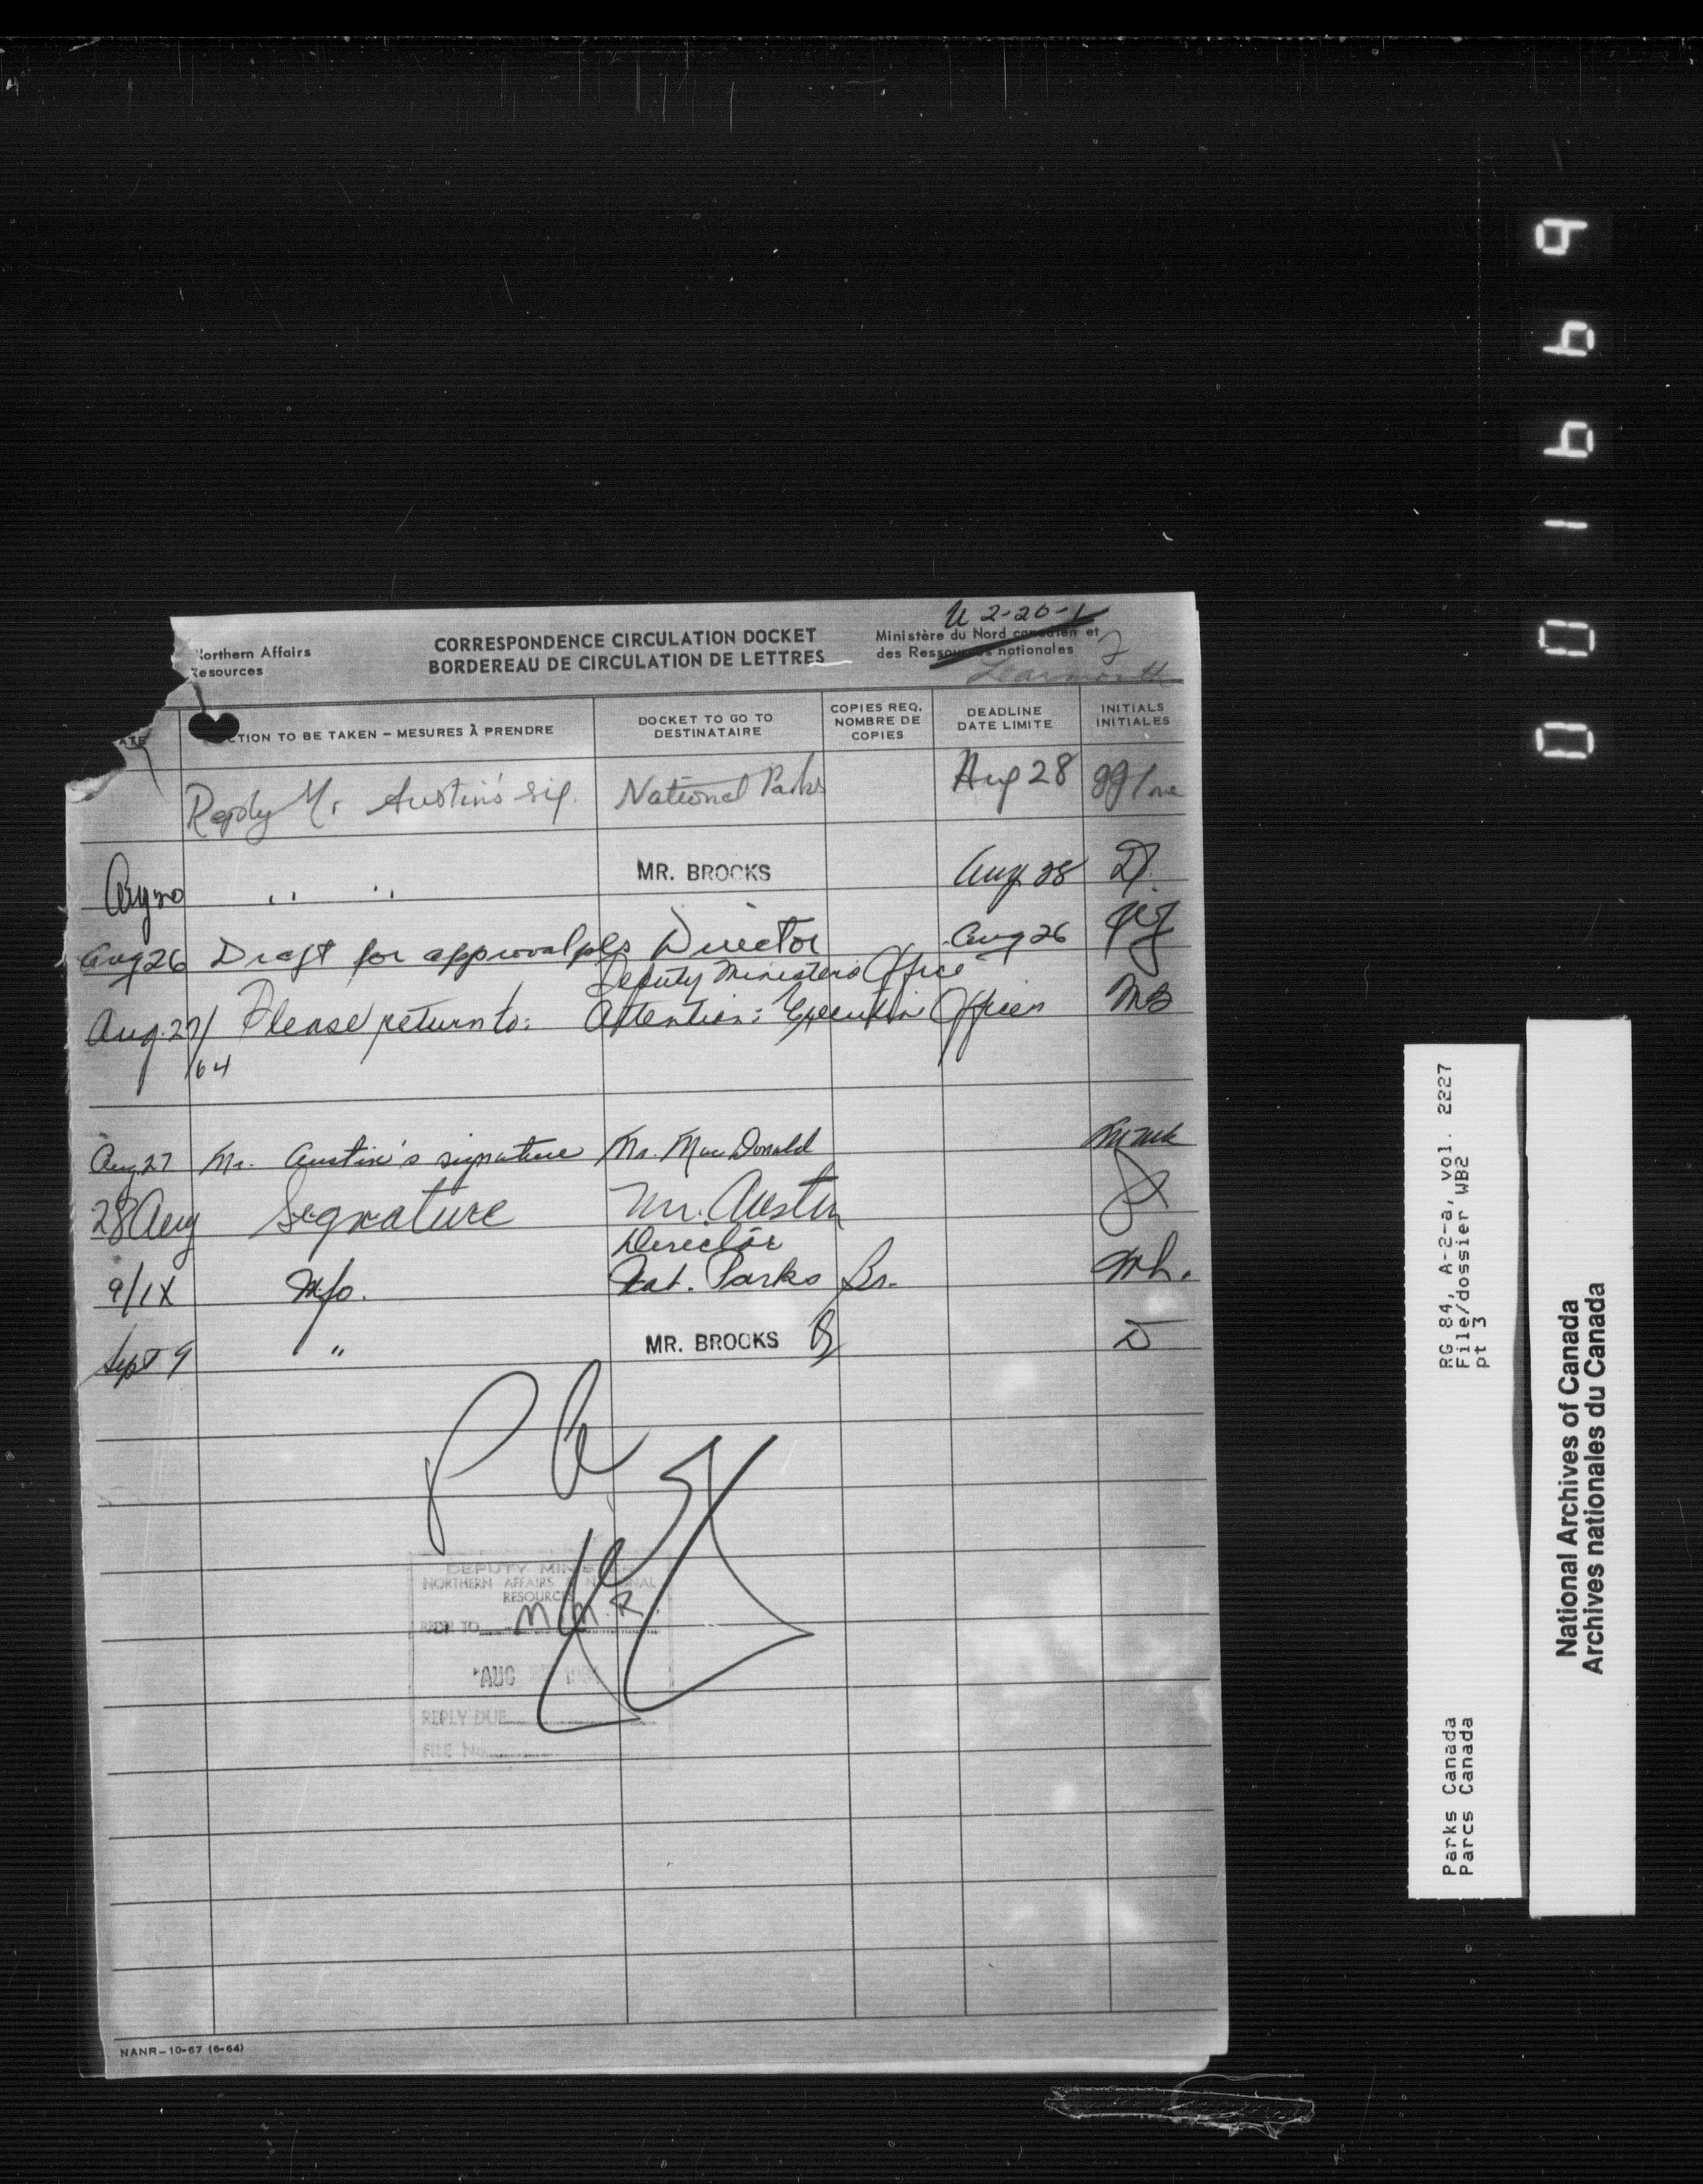 U 2-20-1
Northern Affairs
Resources
CORRESPONDENCE CIRCULATION DOCKET
BORDEREAU DE CIRCULATION DE LETTRES
Ministère du Nord canadien et
des Ressources nationales
Learmonth
ATE
CTION TO BE TAKEN – MESURES À PRENDRE
DOCKET TO GO TO
DESTINATAIRE
COPIES REQ.
NOMBRE DE
COPIES
DEADLINE
DATE LIMITE
INITIALS
INITIALES
Reply Mr Austin's sig. National Parks Aug 28
Aug 20 " " MR. BROOKS Aug 28
Aug 26 Draft for approval pls Director Aug 26
Deputy Minister's Office
Aug. 27/64 Please return to: Attention: Executive Officer MB
Aug 27 Mr. Austin's signature Mr. MacDonald
28 Aug Signature Mr. Austin
Director
9/IX M/o. Nat. Parks Br. mh.
Sept 9 " MR. BROOKS
P A
DEPUTY MINISTER
NORTHERN AFFAIRS & NATIONAL
RESOURCES
REFER TO
AUG
REPLY DUE
FILE No.
NANR–10-67 (6-64)
001669
RG 84, A-2-a, vol. 2227
File/dossier WB2
pt 3
Parks Canada
Parcs Canada
National Archives of Canada
Archives nationales du Canada